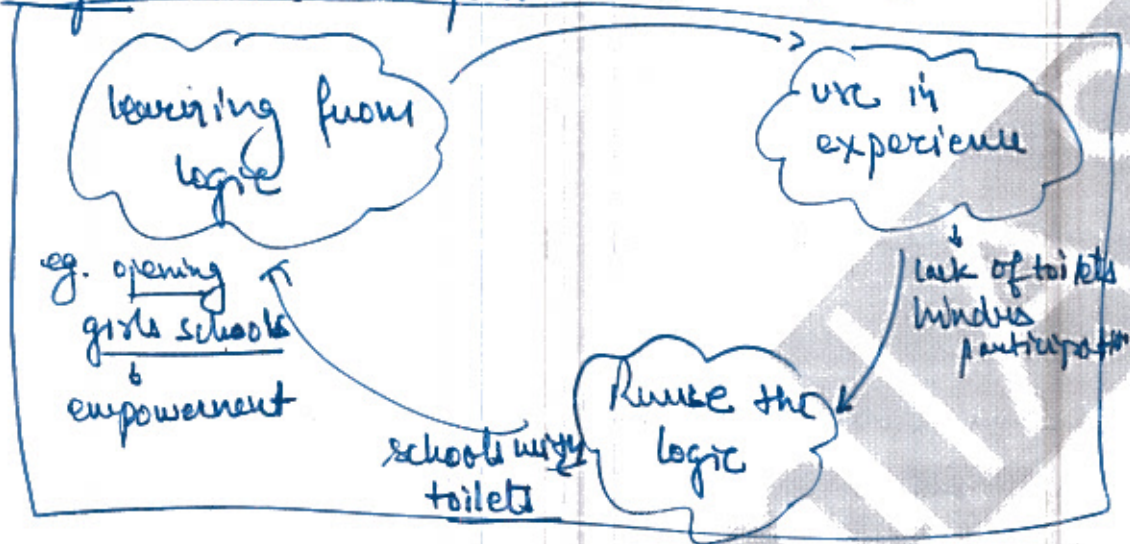 learning from
logic
use in
experience
eg. opening
girls schools
empowerment
lack of toilets
hinders
participation
the
logic
schools with
toilets